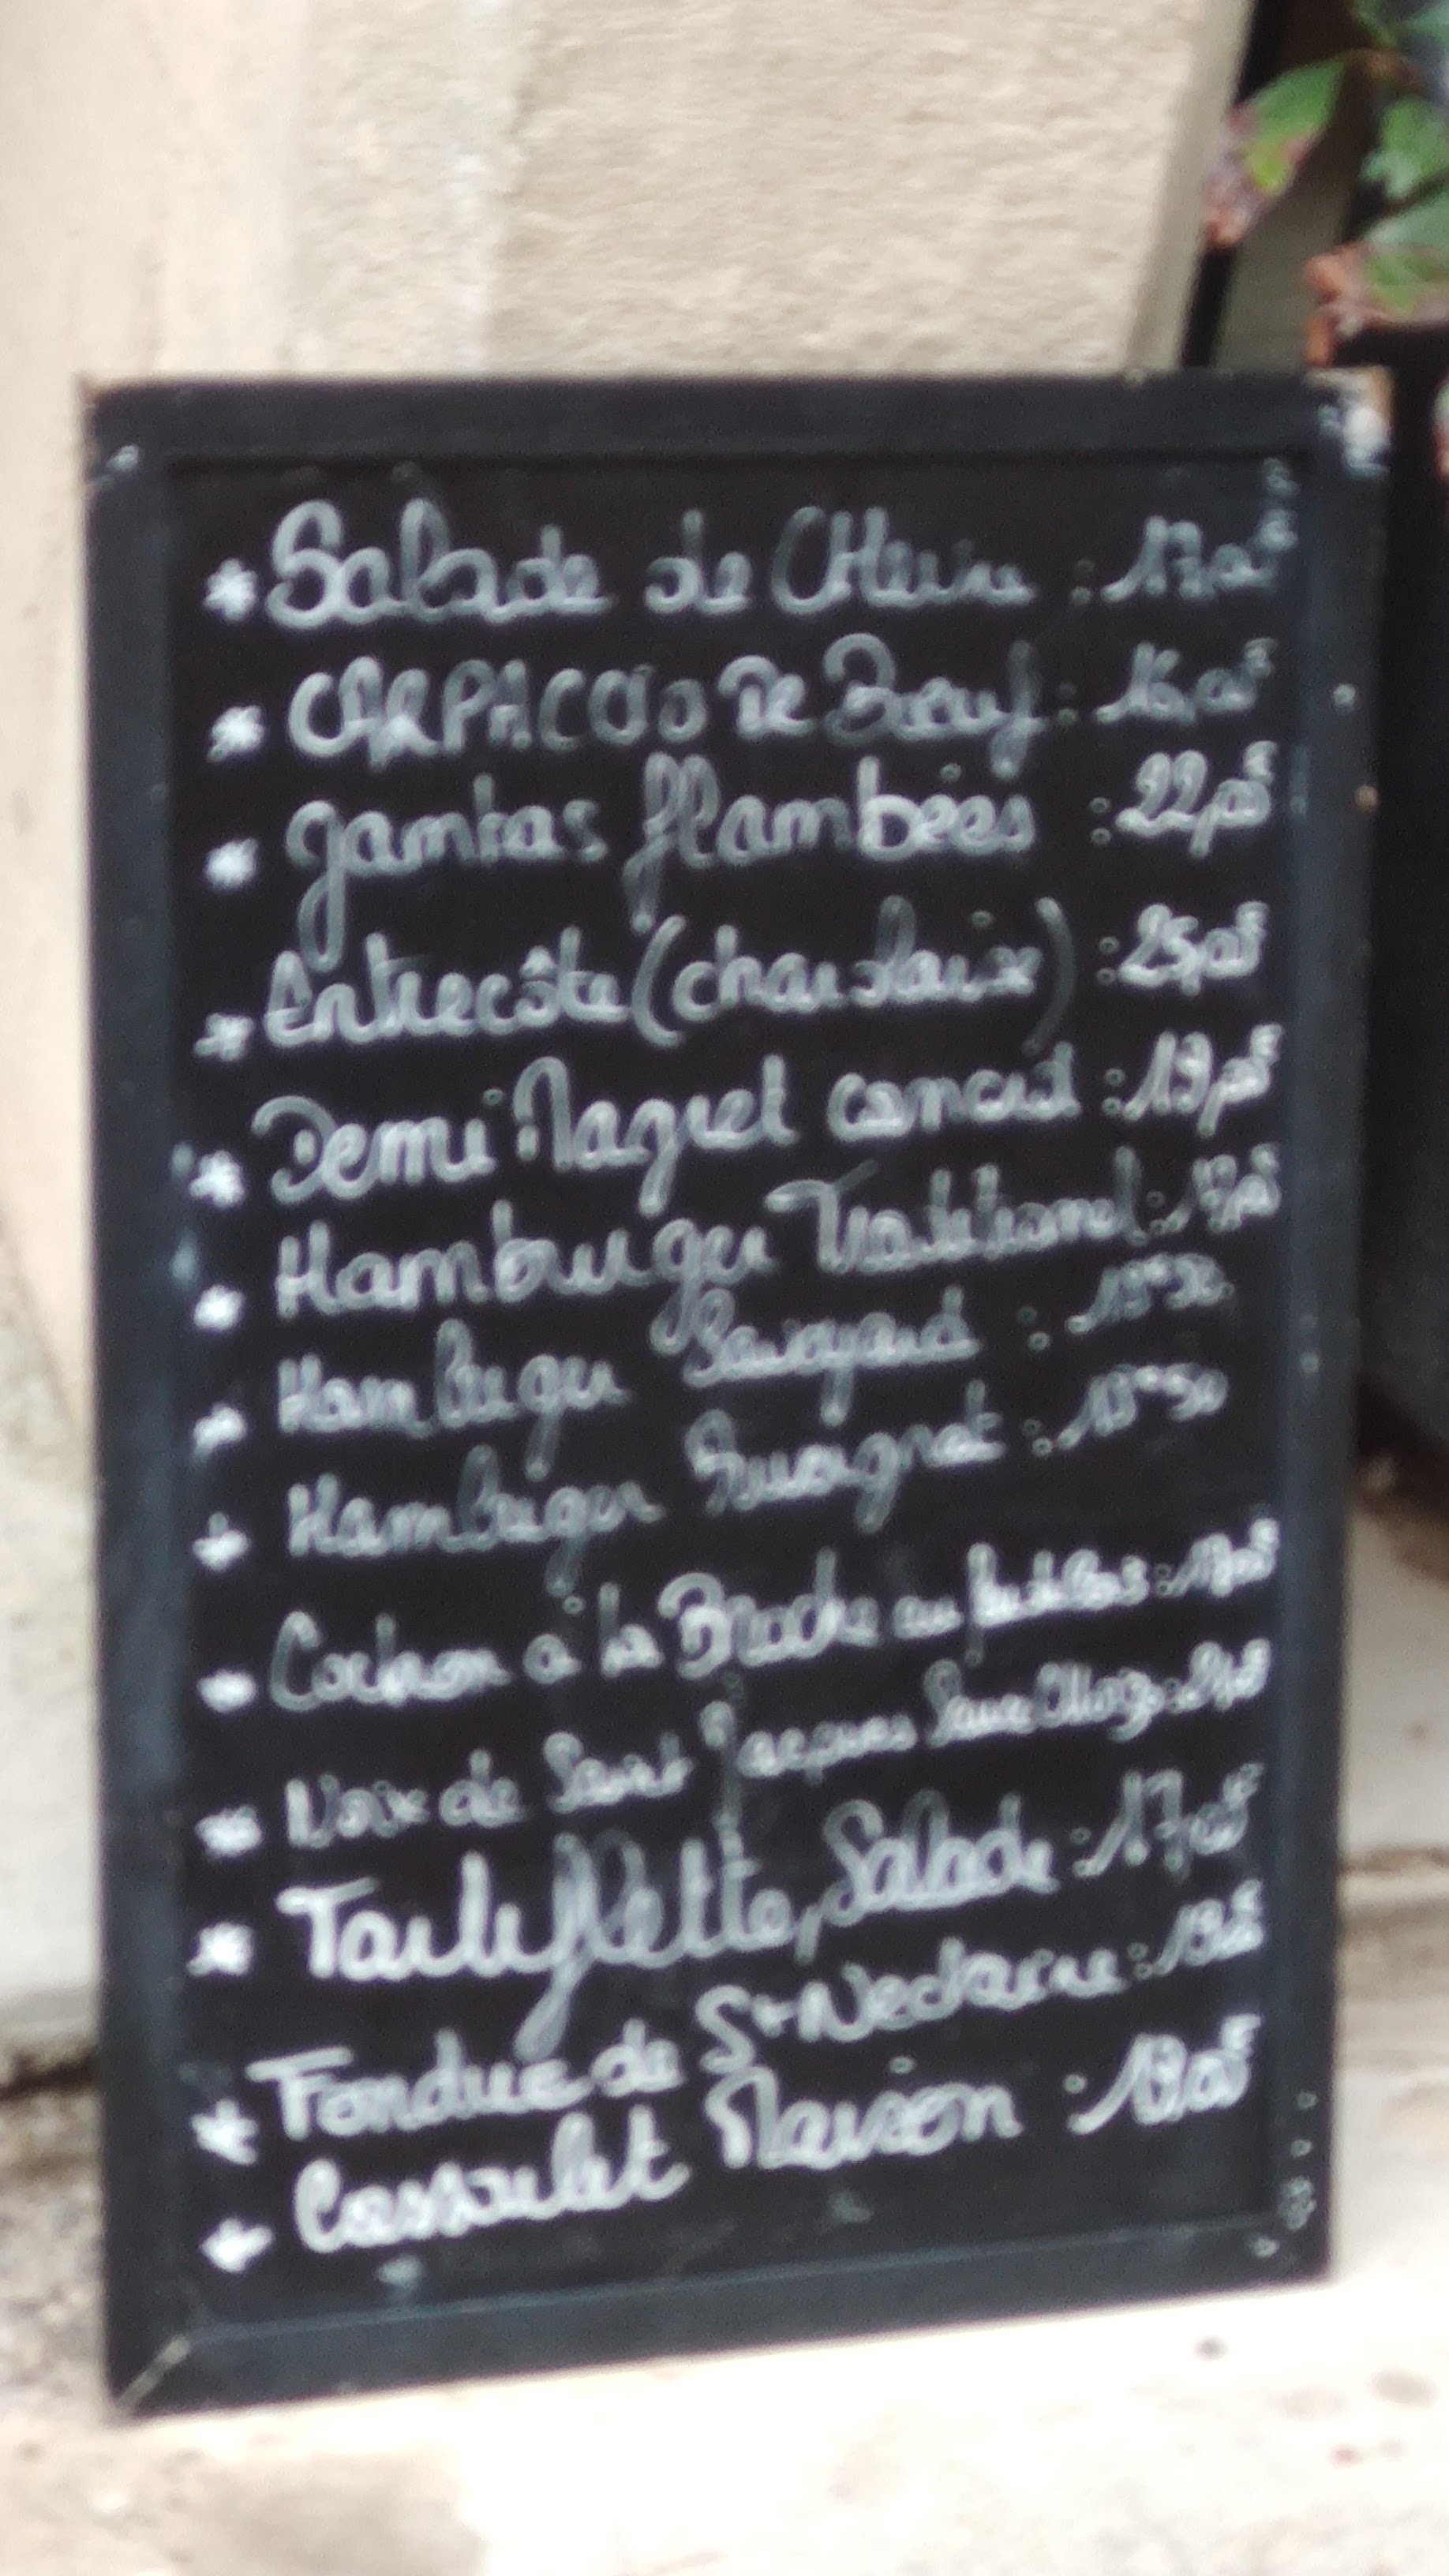 * Salade de CHèvre : 17,00€
* CARPACCIO De Boeuf : 16,00€
* Gambas flambées : 22,00€
* Entrecôte (charolaise) : 25,00€
* Demi Magret canard : 19,00€
* Hamburger Traditionnel : 17,00€
* Hamburger Savoyard :
* Hamburger Auvergnat :
* Cochon à la Broche au
* Noix de Saint Jacques
* Tartiflette, Salade : 17,00€
* Fondue de St Nectaire :
* Cassoulet Maison : 19,00€